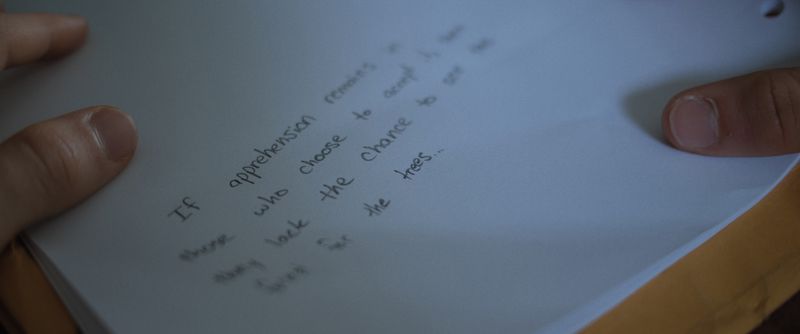 If apprehension remains in
those who choose to accept it, then
they lack the chance to see the
forest for the trees...